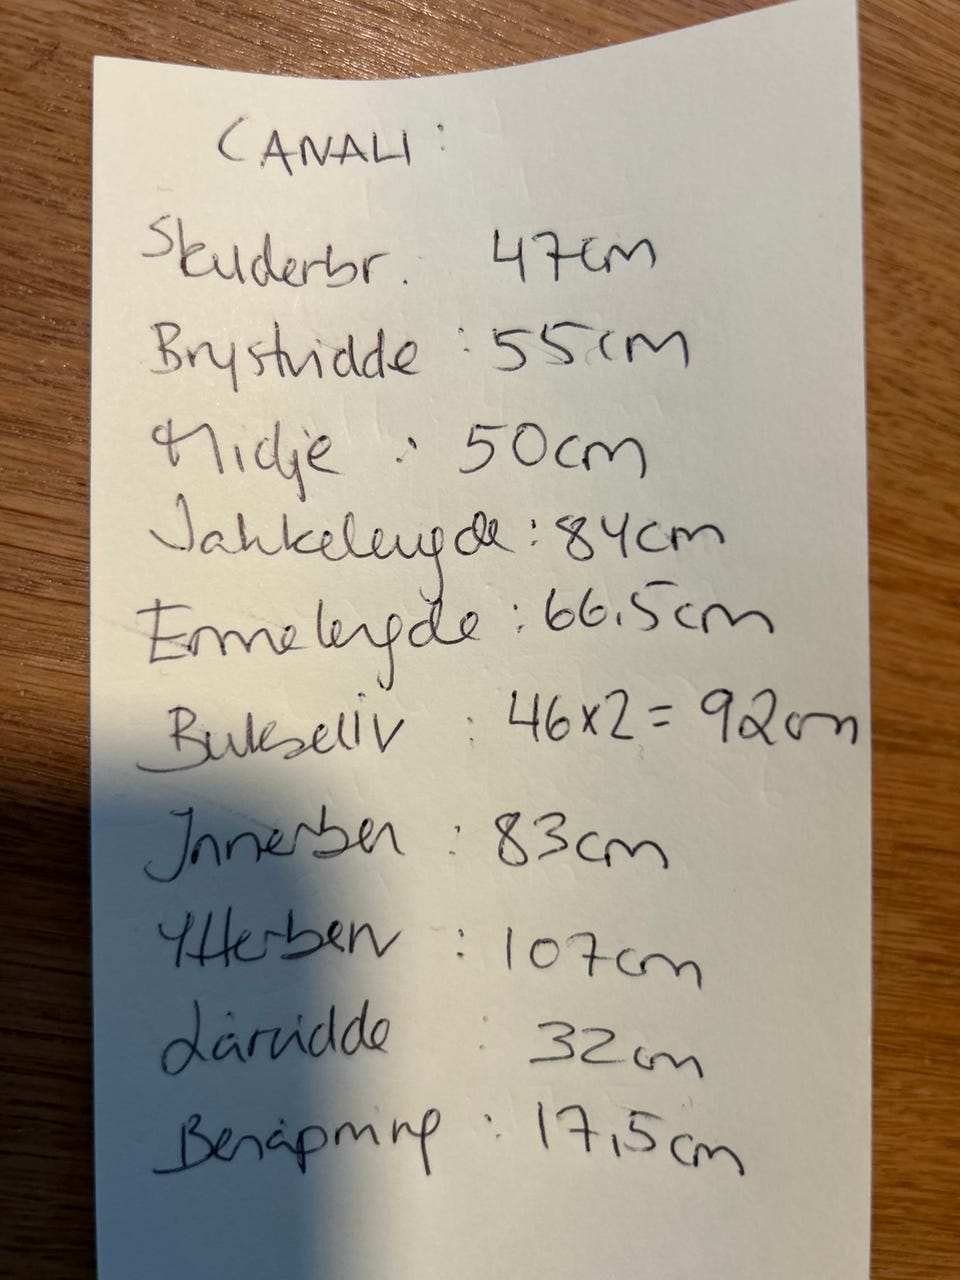 CANALI:
Skulderbr. 47cm
Brystvidde : 55cm
Midje : 50cm
Jakkelengde : 84cm
Ermelengde : 66.5cm
Bukseliv : 46x2 = 92cm
Innerben : 83cm
Ytterben : 107cm
Lårvidde : 32cm
Benåpning : 17,5cm